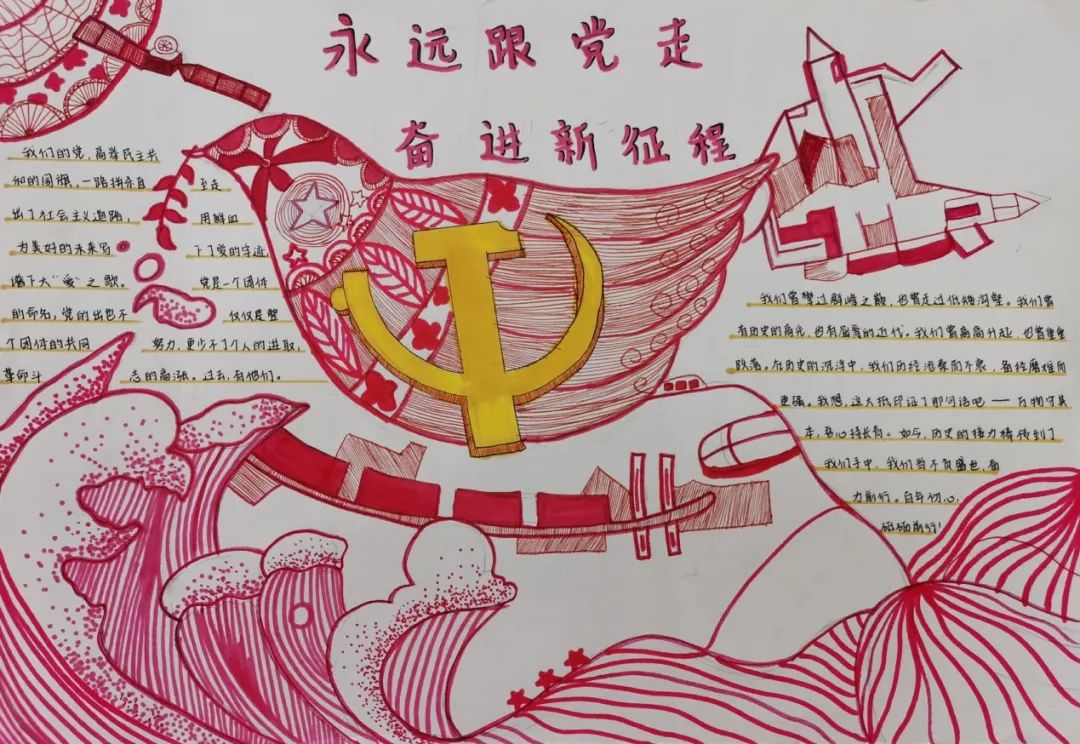 永远跟党走
奋进新征程
我们的党,高举民主共
和的 一路拼杀自 至走
出了社会主义道路, 用鲜血
为美好的未来写 下了爱的字迹
谱下大"爱"之歌。 党是一个团体
的 党的出色不 仅仅是整
个团体的共同 努力,更少不了个人的进取,
革命斗 志的高涨。过去,有他们。
我们曾攀过群峰之巅,也曾走过低矮沟壑。我们曾
有历史的高光,也有屈辱的近代。我们曾高高升起,也曾重重
跌落。在历史的沉浮中,我们历经沧桑而不衰,备经磨难而
更强。我想,这大抵印证了那句话吧——万物守其
本, 心持长有。如今,历史的接力棒传到了
我们手中,我们当不负盛世,奋
力前行。百年初心,
砥砺前行!